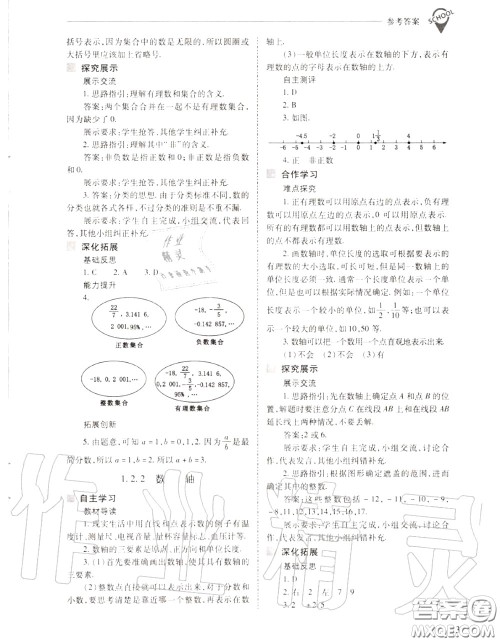 参考答案
SCHOOL
括号表示,因为集合中的数是无限的,所以圆圈或
大括号里应该加上省略号.
探究展示
展示交流
1. 思路指引:理解有理数和集合的含义.
答案:两个集合合并在一起不是有理数集合,
因为缺少了0.
展示要求:学生抢答,其他学生纠正补充.
2. 思路指引:理解其中“非”的含义.
答案:非负数是指正数和0;非正数是指负数
和0.
展示要求:学生抢答,其他学生纠正补充.
3. 答案:分类的思想.由于分类标准不同,数的
分类也就各式各样,不过分类时要做到不重不漏.
展示要求:学生自主完成,小组交流,代表回
答,其他小组纠错补充.
深化拓展
基础反思
1. C 2. A 3. D
能力提升
4.
22/7,3.141 6,
2 001,95%,…
正数集合
-18,-3/5,
-0.142 857,…
负数集合
-18,0,2 001,…
整数集合
有理数集合
拓展创新
5. 由题意,可知 a=1,b=0,1,2. 因为 a/6 是最
多的,所以 a=1,b=2. 所以 a+b=3.
1.2.2 数 轴
自主学习
教材导读
1. 现实生活中用直线和点表示数的例子:温度
计、测量尺、电视音量、量杯容量标志、血压计等.
2. 数轴的三要素:原点、正方向和单位长度.
3. (1)首先要把直线画出来,使其具有数轴的
三要素.
(2)整数点直接可以在直线上找到,对于分数和
小数,要思考清楚是靠近大数还是靠近小数,表示在数
轴上.
(3)一般单位长度表示在数轴的下方,表示有
理数的点的字母表示在数轴的上方.
自主测评
1. D
2. B
3. 如图.
4. 正 非正数
合作学习
难点探究
1. 正有理数可以用原点右边的点表示,负有理
数可以用原点左边的点表示,0可以用原点表示.所
有的有理数都可以用数轴上的点表示,但数轴上的
点不都表示有理数.
2. 画数轴时,单位长度的选取可根据要表示的
有理数的大小选取,可长可短,但同一数轴上的单位
长度必须一致.通常选一个长度适当的线段作为单
位长度,并根据实际情况确定.
3. 数轴可以把一个数用一个点直观地表示出来.
(1)不会 (2)不会 (3)有
探究展示
展示交流
1. 思路指引:先在数轴上确定点A和点B的位
置,解题时要注意分点C在线段AB上和在线段AB
延长线上两种情况,不要丢解.
答案:0或6
展示要求:学生自主完成,小组交流,讨论合
作,代表发言,其他小组纠错补充.
2. 思路指引:根据图形确定遮盖的范围,进而
确定其中的整数.
答案:这些整数包括-12,-11,-10,-9,
-8,11,12,13,14,15,16,17.
展示要求:学生自主完成,小组交流,讨论合作,
代表发言,其他小组纠错补充.
深化拓展
基础反思
1. D
2. 右 2 左 7 9